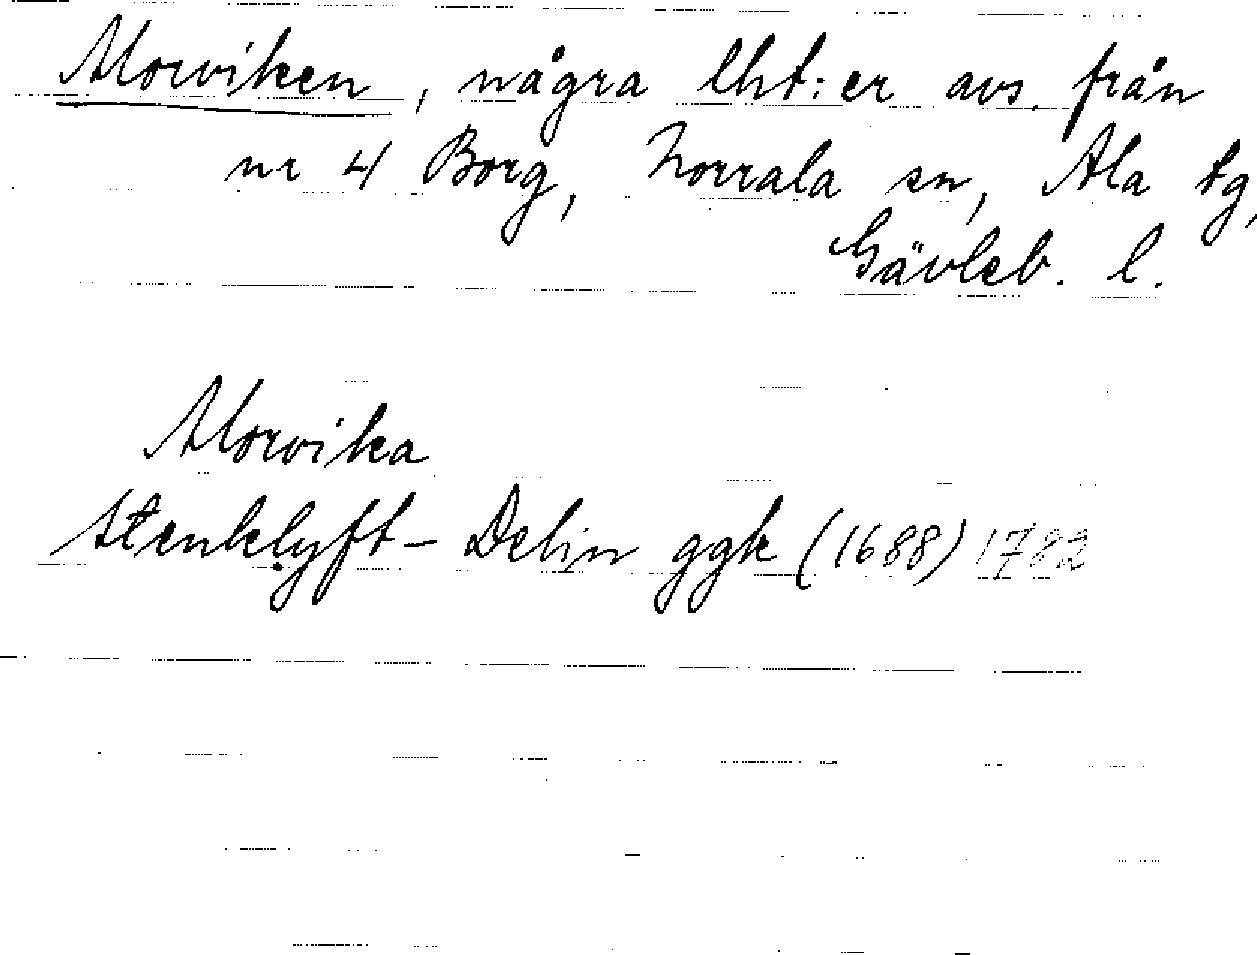 Morviken, några lht:er avs. från
nr 4 Borg, Norrala sn, Ala tg,
Gävleb. l.
Morvika
Stenklyft- Delin ggk (1688) 1782